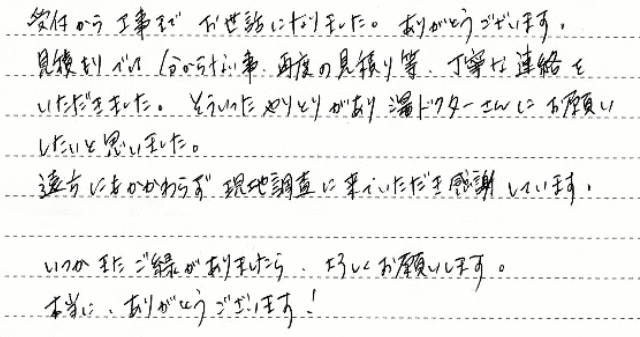 受付から工事まで お世話になりました。ありがとうございます。
見積もりでは 分からない事、再度の見積り等、丁寧な連絡を
いただきました。そういったやりとりがあり 湯ドクターさんに お願い
したいと思いました。
遠方にもかかわらず 現地調査に来ていただき感謝しています。
いつか またご縁がありましたら、よろしくお願いします。
本当に、ありがとうございます！